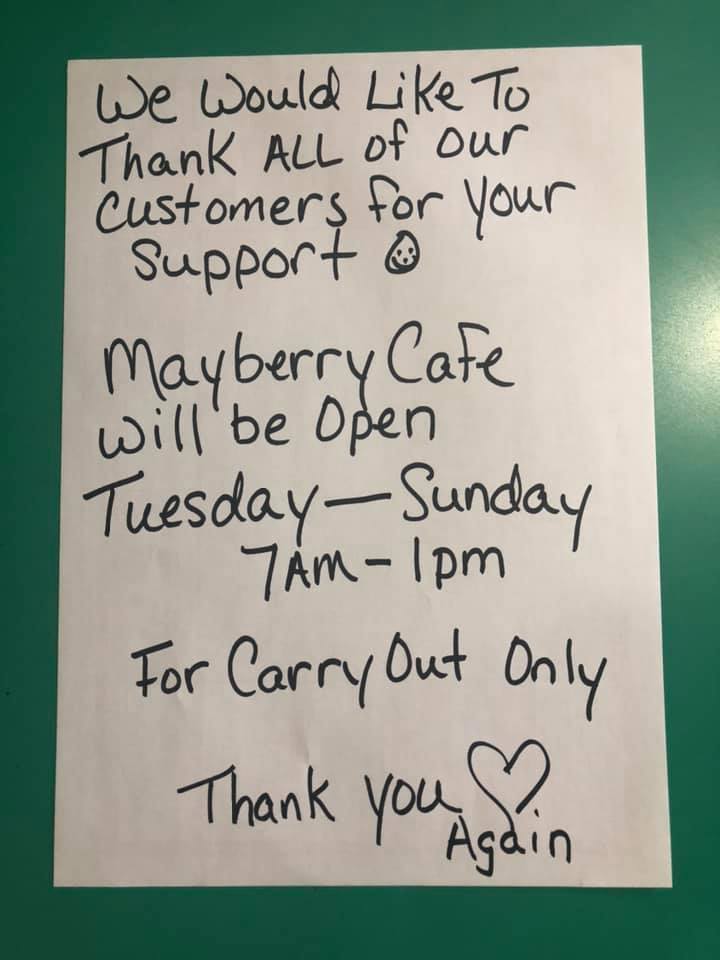 We Would Like To
Thank ALL of our
Customers for your
Support
Mayberry Cafe
will be Open
Tuesday — Sunday
7AM - 1pm
For Carry Out Only
Thank you
Again